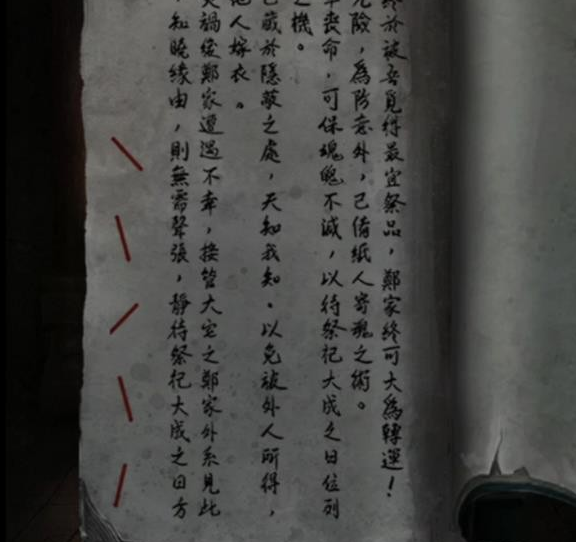 終於被吾覓得最宜祭品，鄭家終可大為轉運！
兇險，為防意外，已備紙人寄魂之術。
喪命，可保魂魄不滅，以待祭祀大成之日位列
之機。
已藏於隱蔽之處，天知我知。以免被外人所得，
他人嫁衣。
禍從鄭家遭遇不幸，接管大宅之鄭家外系見此
知曉緣由，則無需聲張，靜待祭祀大成之日方